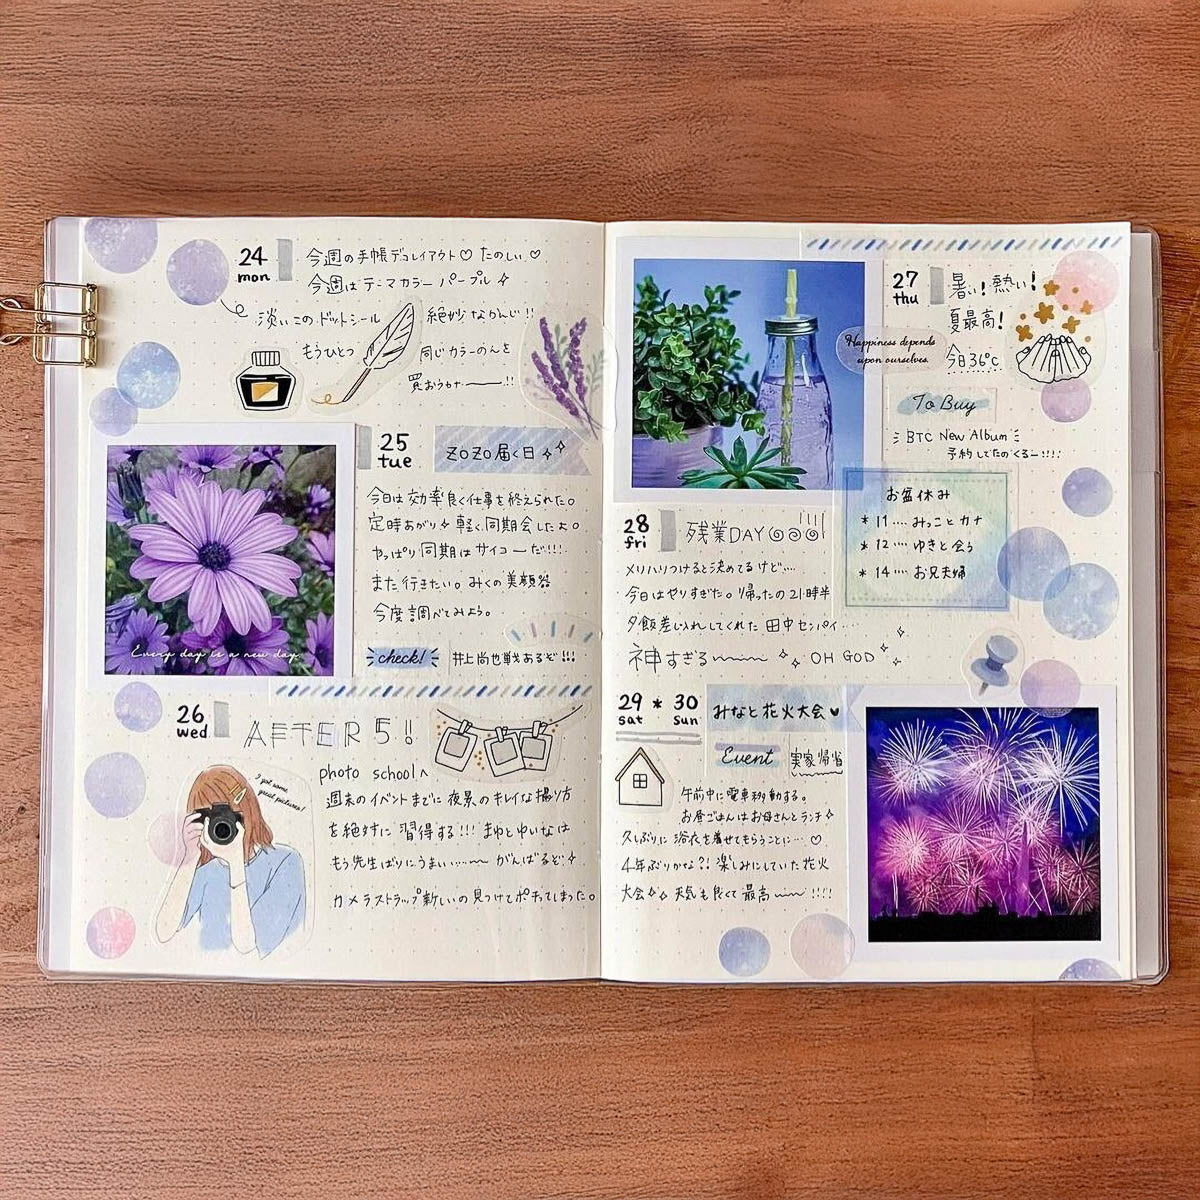 24
mon
今週の手帳デコレイアウト♡ たのしい♡
今週はテーマカラー パープル✧
淡いこのドットシール 絶妙なかんじ!!
もうひとつ 同じカラーのんを
買おうかナ――!!
25
tue
ZOZO届く日
今日は効率良く仕事を終えられた。
定時あがり✧ 軽く同期会したよ。
やっぱり同期はサイコーだ!!!
また行きたい。みくの美顔器
今度調べてみよう。
check!
井上尚也戦あるぞ!!!
Every day is a new day
26
wed
AFTER 5!!
I got some
great pictures!
photo schoolへ
週末のイベントまでに夜景のキレイな撮り方
を絶対に習得する!!! まゆとゆいなは
もう先生ばりにうまい……〜 がんばるぞ✧
カメラストラップ新しいの見つけてポチってしまった。
27
thu
暑い! 熱い!
夏最高!
今日36℃
Happiness depends
upon ourselves.
To Buy
BTC New Album
予約してたのくるー!!!!
お盆休み
* 11 …… みっことカナ
* 12 …… ゆきと会う
* 14 …… お兄夫婦
28
fri
残業DAY
メリハリつけると決めてるけど……
今日はやりすぎた。帰ったの21時半
夕飯差し入れしてくれた 田中センパイ…
神すぎる〜〜 OH GOD
29 * 30
sat Sun
みなと花火大会♥
Event
実家帰省
午前中に電車移動する。
お昼ごはんはお母さんとランチ✧
久しぶりに浴衣を着せてもらうことに…♡
4年ぶりかな?! 楽しみにしていた花火
大会✧✧ 天気も良くて最高〜〜 !!!!